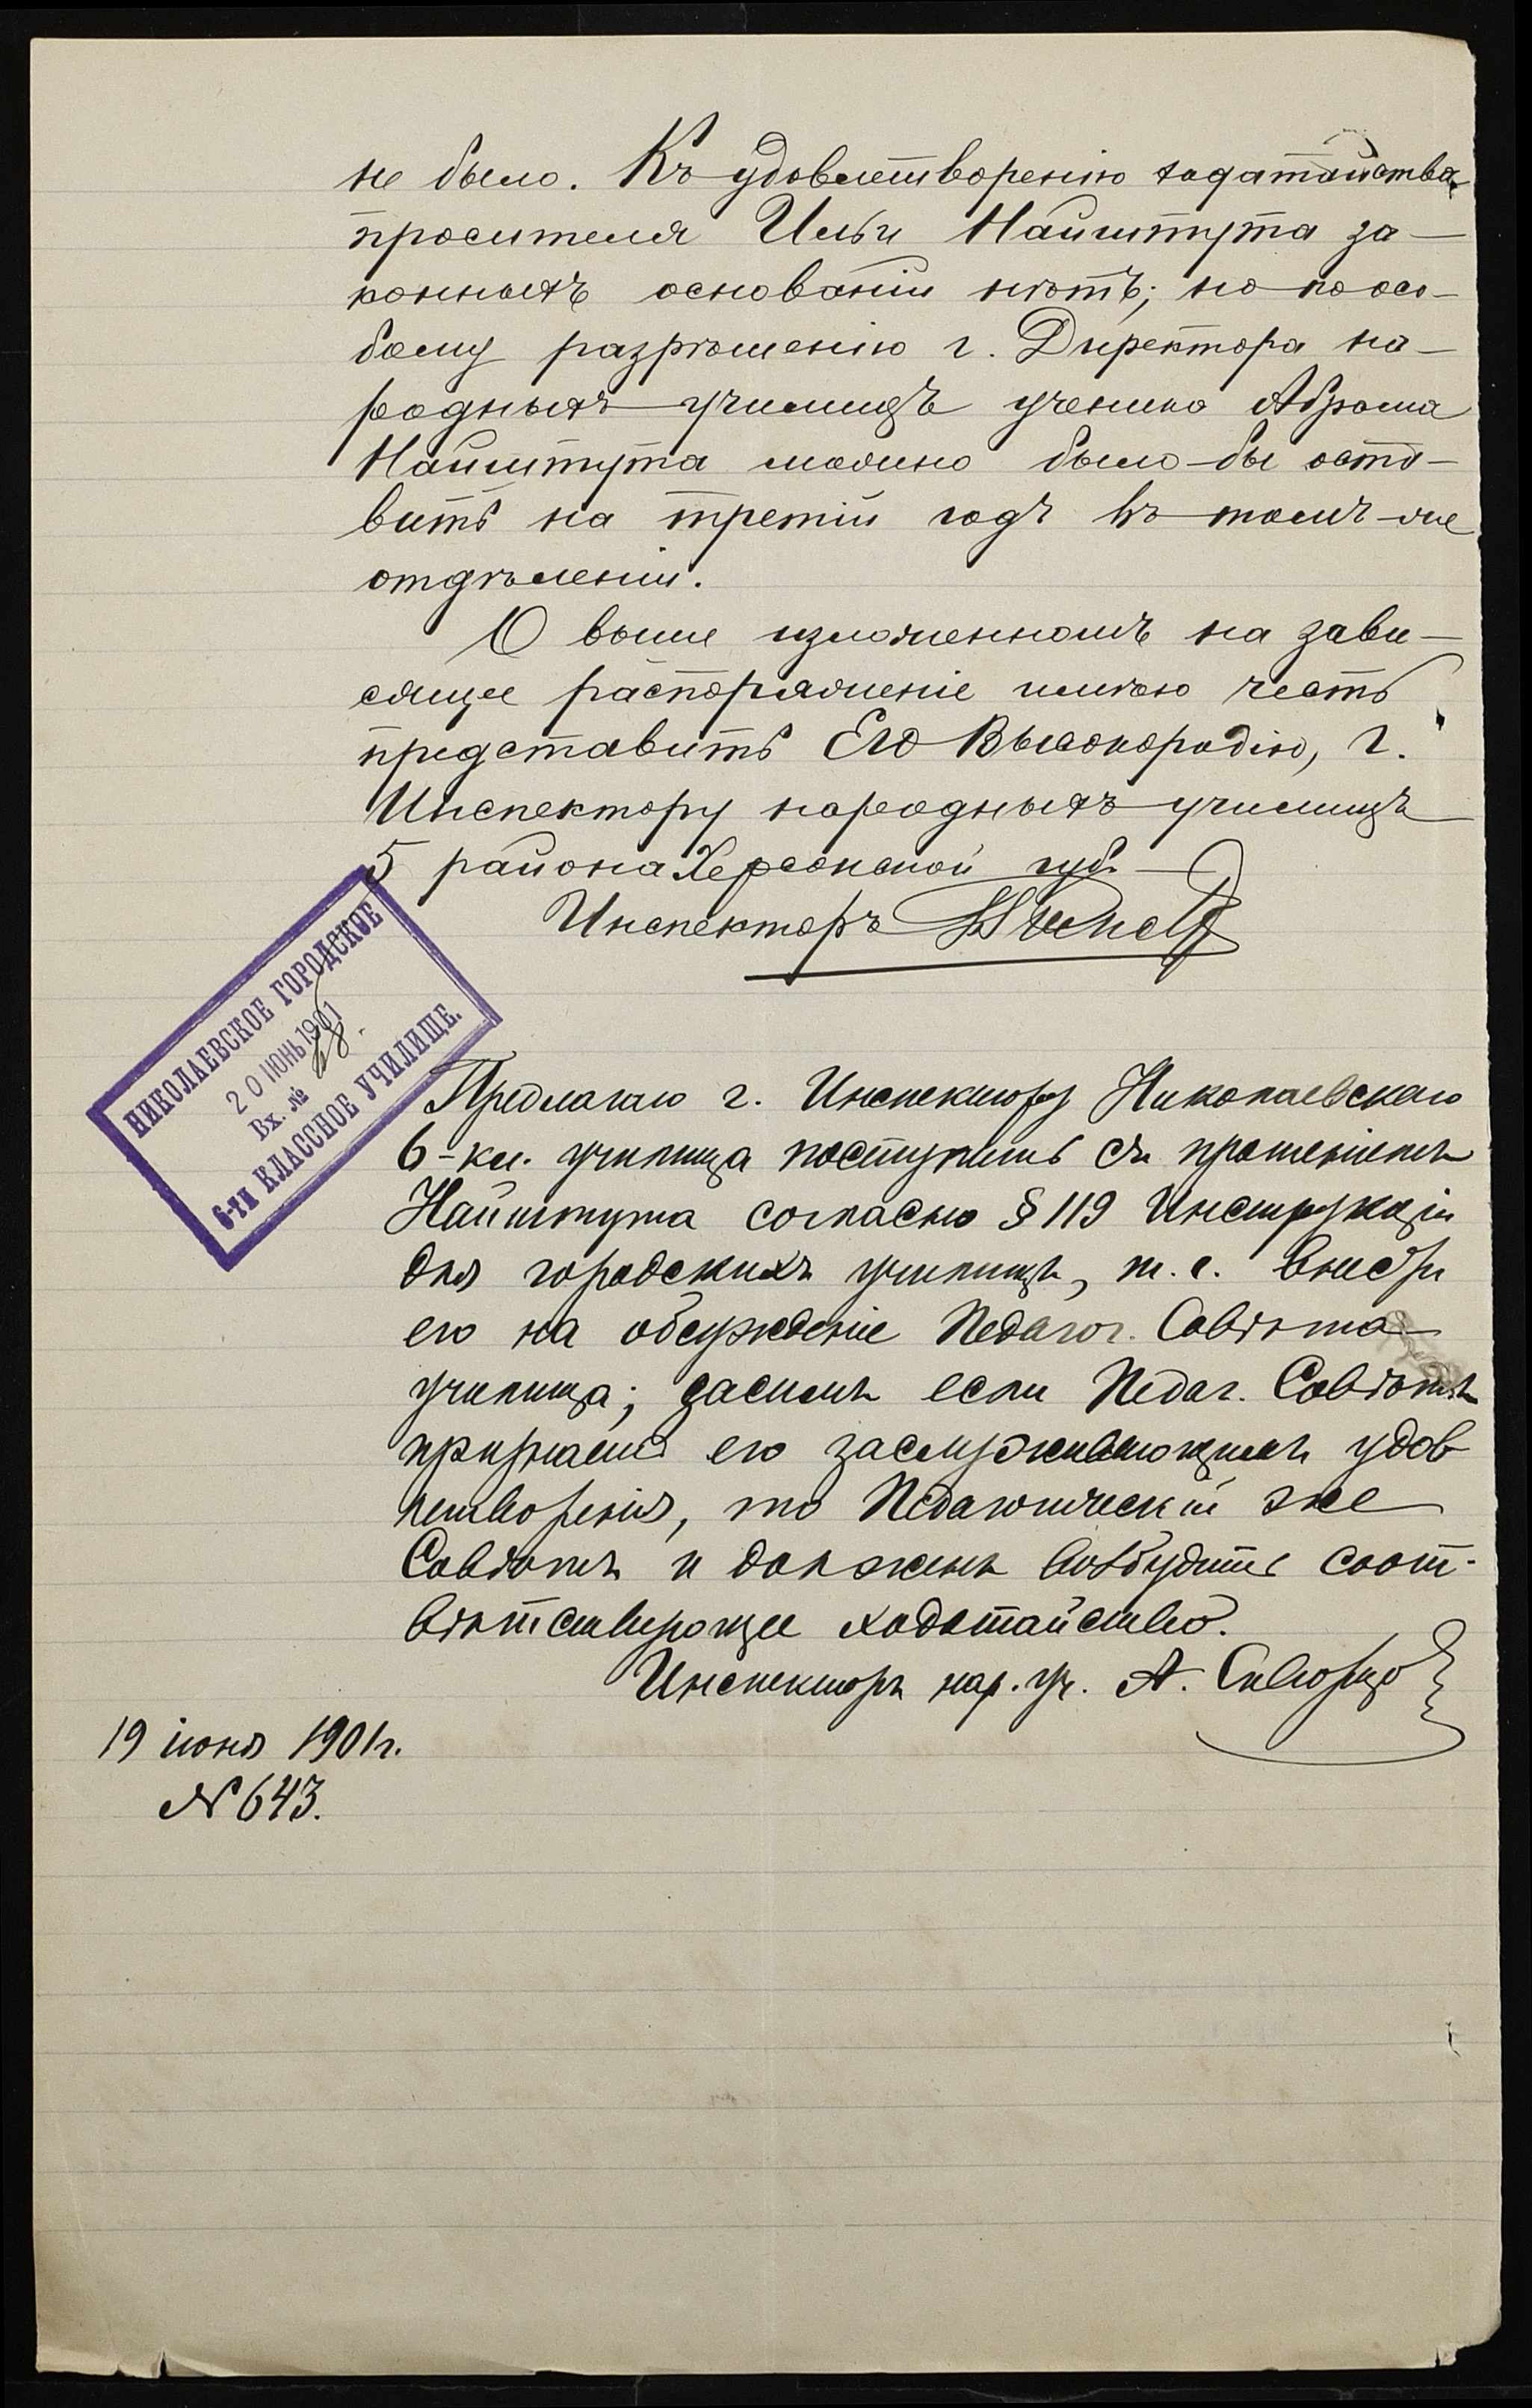 не было. Къ удовлетворенію ходатайства
просителя Ильи Найштута за—
конныхъ основаній нѣтъ; но по осо—
бому разрѣшенію г. Директора на—
родныхъ училищъ ученика Абрама
Найштута можно было-бы оста—
вить на третій годъ въ томъ-же
отдѣленіи.
О выше изложенномъ на зави—
сящее распоряженіе имѣю честь
представить Его Высокородію, г.
Инспектору народныхъ училищъ
5 района Херсонской губ.
Инспекторъ
НИКОЛАЕВСКОЕ ГОРОДСКОЕ
20 ІЮНЬ 1901
Вх. №
6-ТИ КЛАССНОЕ УЧИЛИЩЕ.
Предлагаю г. Инспектору Николаевскаго
6-кл. училища поступить съ прошеніемъ
Найштута согласно § 119 Инструкціи
для городскихъ училищъ, т. е. внести
его на обсужденіе Педагог. Совѣта
училища; засимъ если Педаг. Совѣтъ
признаетъ его заслуживающимъ удов
летворенія, то Педагогическій же
Совѣтъ и долженъ возбудить соот-
вѣтствующее ходатайство.
Инспекторъ нар. уч. А. Скворцо
19 іюня 1901 г.
№ 643.